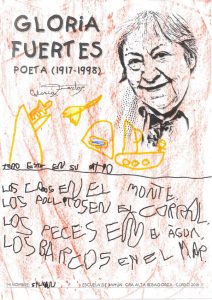 GLORIA
FUERTES
POETA (1917-1998)
Gloria Fuertes
TODO ESTÁ EN SU SITIO
LOS LOBOS EN EL MONTE.
LOS POLLITOS EN EL CORRAL
LOS PECES EN EL AGUA.
LOS BARCOS EN EL MAR
MI NOMBRE:
ESCUELA DE CRA ALTA RIBAGORZA - CURSO